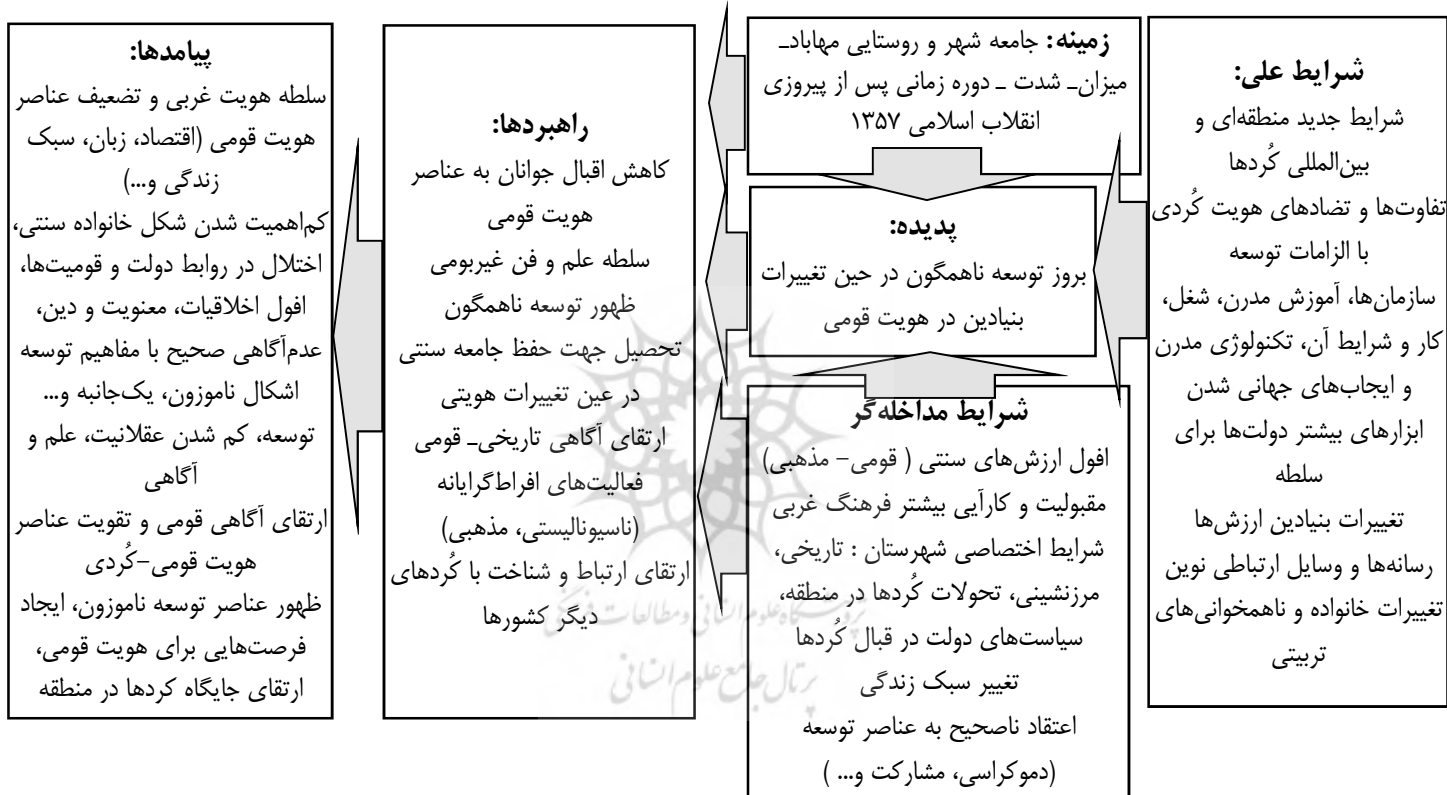 شرایط علی:
شرایط جدید منطقه‌ای و
بین‌المللی کُردها
تفاوت‌ها و تضادهای هویت کُردی
با الزامات توسعه
سازمان‌ها، آموزش مدرن، شغل،
کار و شرایط آن، تکنولوژی مدرن
و ایجاب‌های جهانی شدن
ابزارهای بیشتر دولت‌ها برای
سلطه
تغییرات بنیادین ارزش‌ها
رسانه‌ها و وسایل ارتباطی نوین
تغییرات خانواده و ناهمخوانی‌های
تربیتی
زمینه: جامعه شهر و روستایی مهاباد_
میزان_ شدت _ دوره زمانی پس از پیروزی
انقلاب اسلامی ۱۳۵۷
پدیده:
بروز توسعه ناهمگون در حین تغییرات
بنیادین در هویت قومی
شرایط مداخله‌گر
افول ارزش‌های سنتی ( قومی- مذهبی)
مقبولیت و کارآیی بیشتر فرهنگ غربی
شرایط اختصاصی شهرستان : تاریخی،
مرزنشینی، تحولات کُردها در منطقه،
سیاست‌های دولت در قبال کُردها
تغییر سبک زندگی
اعتقاد ناصحیح به عناصر توسعه
(دموکراسی، مشارکت و... )
راهبردها:
کاهش اقبال جوانان به عناصر
هویت قومی
سلطه علم و فن غیربومی
ظهور توسعه ناهمگون
تحصیل جهت حفظ جامعه سنتی
در عین تغییرات هویتی
ارتقای آگاهی تاریخی_ قومی
فعالیت‌های افراط‌گرایانه
(ناسیونالیستی، مذهبی)
ارتقای ارتباط و شناخت با کُردهای
دیگر کشورها
پیامدها:
سلطه هویت غربی و تضعیف عناصر
هویت قومی (اقتصاد، زبان، سبک
زندگی و...)
کم‌اهمیت شدن شکل خانواده سنتی،
اختلال در روابط دولت و قومیت‌ها،
افول اخلاقیات، معنویت و دین،
عدم‌آگاهی صحیح با مفاهیم توسعه
اشکال ناموزون، یک‌جانبه و...
توسعه، کم شدن عقلانیت، علم و
آگاهی
ارتقای آگاهی قومی و تقویت عناصر
هویت قومی-کُردی
ظهور عناصر توسعه ناموزون، ایجاد
فرصت‌هایی برای هویت قومی،
ارتقای جایگاه کردها در منطقه
پژوهشگاه علوم انسانی و مطالعات فرهنگی
پرتال جامع علوم انسانی